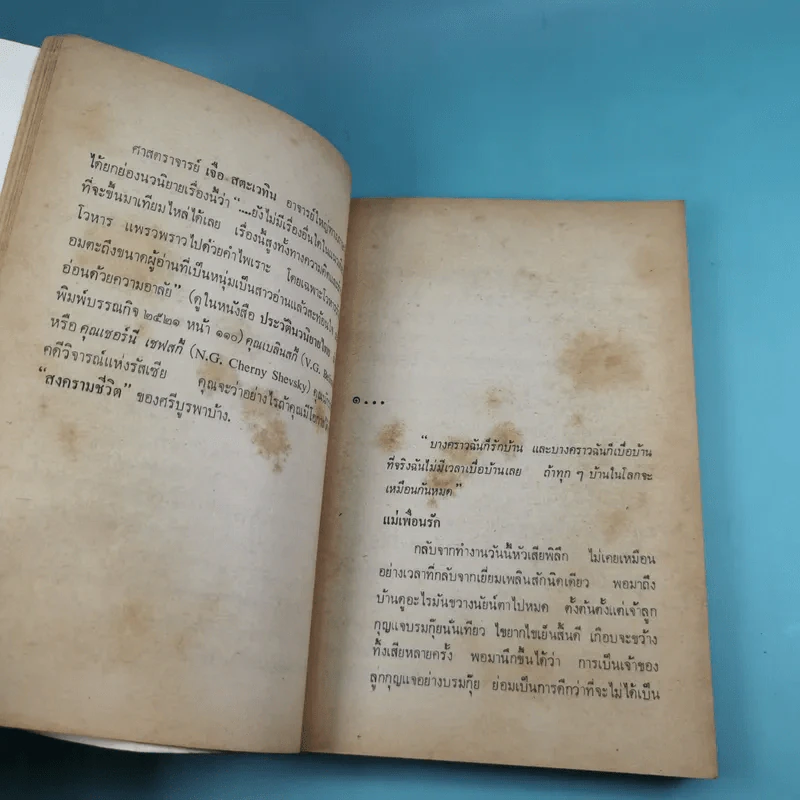 ศาสตราจารย์ เจือ สตะเวทิน อาจารย์ใหญ่
ได้ยกย่องนวนิยายเรื่องนี้ว่า “....ยังไม่มีเรื่องอื่นใดใน
ที่จะขึ้นมาเทียมไหล่ได้เลย เรื่องนี้สูงทั้งทางความคิด
โวหาร แพรวพราวไปด้วยคำไพเราะ โดยเฉพาะโวหาร
อมตะถึงขนาดผู้อ่านที่เป็นหนุ่มเป็นสาวอ่านแล้วสะท้อน
อ่อนด้วยความอาลัย” (ดูในหนังสือ ประวัตินวนิยายไทย
พิมพ์บรรณกิจ ๒๕๒๑ หน้า ๑๑๐) คุณเบลินสกี้ (V.G.
หรือ คุณเชอร์นี่ เชฟสกี้ (N.G. Cherny Shevsky)
คดีวิจารณ์แห่งรัสเซีย คุณจะว่าอย่างไรถ้าคุณมี
“สงครามชีวิต” ของศรีบูรพาบ้าง.
๑...
“บางคราวฉันก็รักบ้าน และบางคราวฉันก็เบื่อบ้าน
ที่จริงฉันไม่มีเวลาเบื่อบ้านเลย ถ้าทุก ๆ บ้านในโลกจะ
เหมือนกันหมด”
แม่เพื่อนรัก
กลับจากทำงานวันนี้หัวเสียพิลึก ไม่เคยเหมือน
อย่างเวลาที่กลับจากเยี่ยมเพลินสักนิดเดียว พอมาถึง
บ้านดูอะไรมันขวางนัยน์ตาไปหมด ตั้งต้นตั้งแต่เจ้าลูก
กุญแจบรมกุ๊ยนั่นเทียว ไขยากไขเย็นสิ้นดี เกือบจะขว้าง
ทิ้งเสียหลายครั้ง พอมานึกขึ้นได้ว่า การเป็นเจ้าของ
ลูกกุญแจอย่างบรมกุ๊ย ย่อมเป็นการดีกว่าที่จะไม่ได้เป็น